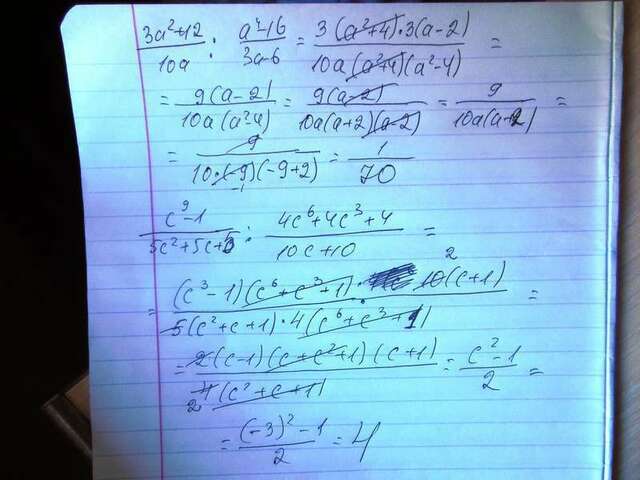 (3a²+12)/(10a) : (a⁴-16)/(3a-6) = (3(a²+4)·3(a-2))/(10a(a²+4)(a²-4)) =
= (9(a-2))/(10a(a²-4)) = (9(a-2))/(10a(a+2)(a-2)) = 9/(10a(a+2)) =
= 9/(10·(-9)(-9+2)) = 1/70
(c⁹-1)/(5c²+5c+5) : (4c⁶+4c³+4)/(10c+10) =
= ((c³-1)(c⁶+c³+1)· 10(c+1))/(5(c²+c+1)·4(c⁶+c³+1)) =
= (2(c-1)(c+c²+1)(c+1))/(4(c²+c+1)) = (c²-1)/2 =
= ((-3)²-1)/2 = 4